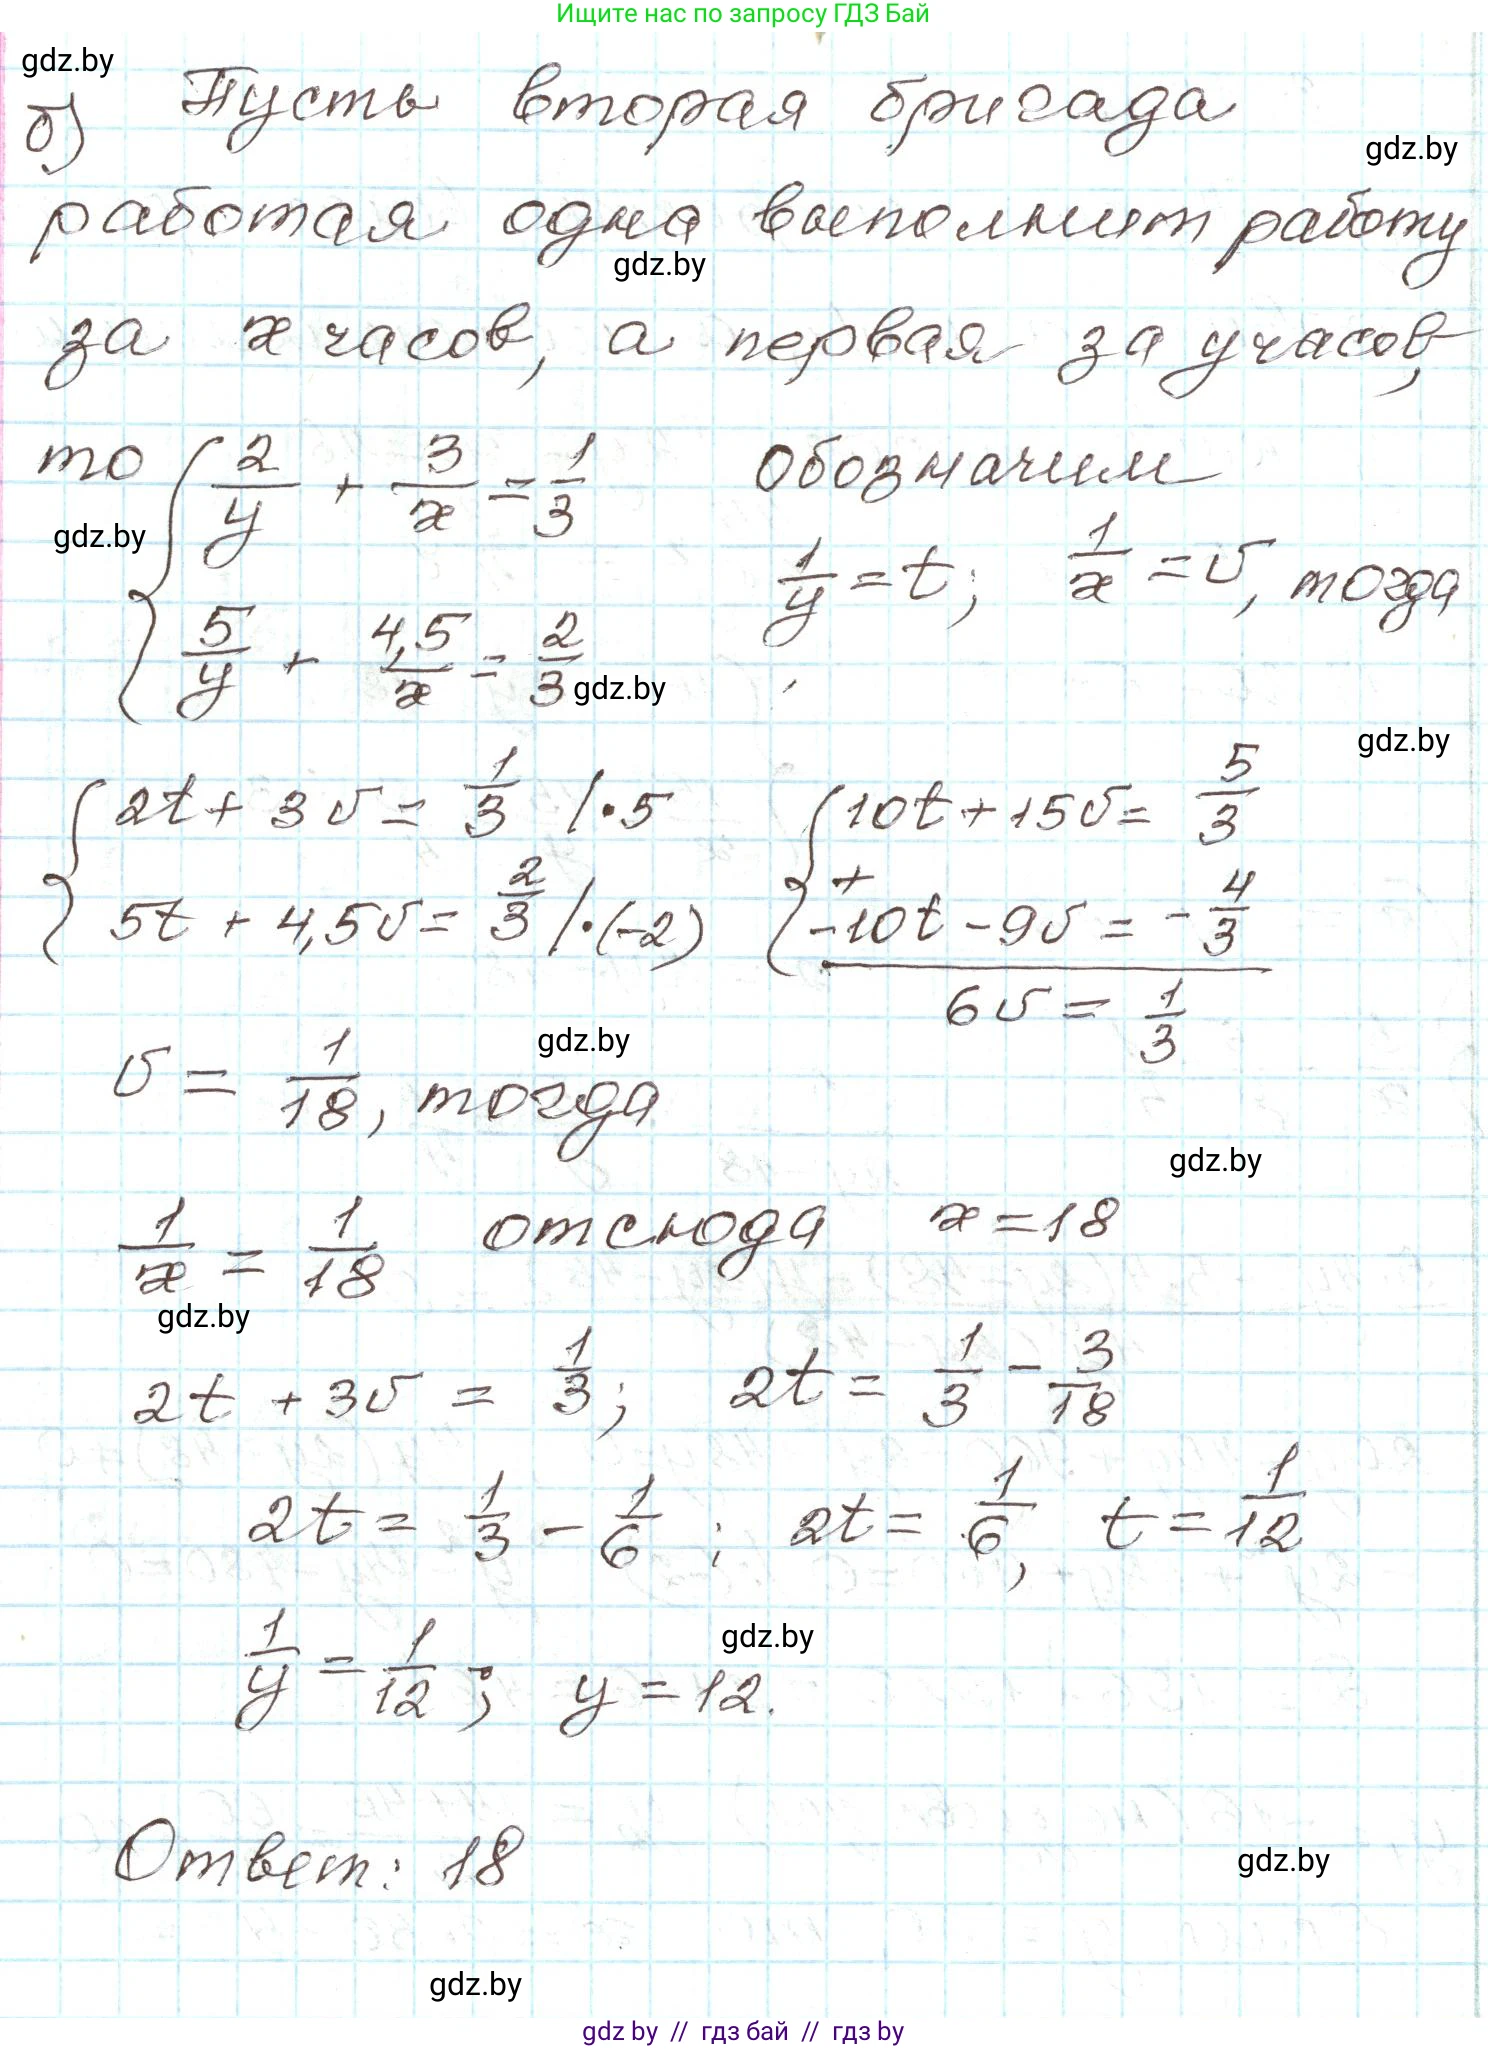 Ищите нас по запросу ГДЗ Бай
gdz.by
б) Пусть вторая бригада
gdz.by
работая одна выполнит работу
gdz.by
за x часов, а первая за y часов,
то { 2/y + 3/x = 1/3 обозначим
gdz.by
1/y = t; 1/x = v, тогда
5/y + 4,5/x = 2/3
gdz.by
gdz.by
{ 2t + 3v = 1/3 /·5 { 10t + 15v = 5/3
+
5t + 4,5v = 2/3 /·(-2) -10t - 9v = - 4/3
6v = 1/3
gdz.by
v = 1/18, тогда
gdz.by
1/x = 1/18 отсюда x = 18
gdz.by
2t + 3v = 1/3; 2t = 1/3 - 3/18
2t = 1/3 - 1/6; 2t = 1/6, t = 1/12
gdz.by
1/y = 1/12; y = 12.
Ответ: 18
gdz.by
gdz.by
gdz by // гдз бай // гдз by